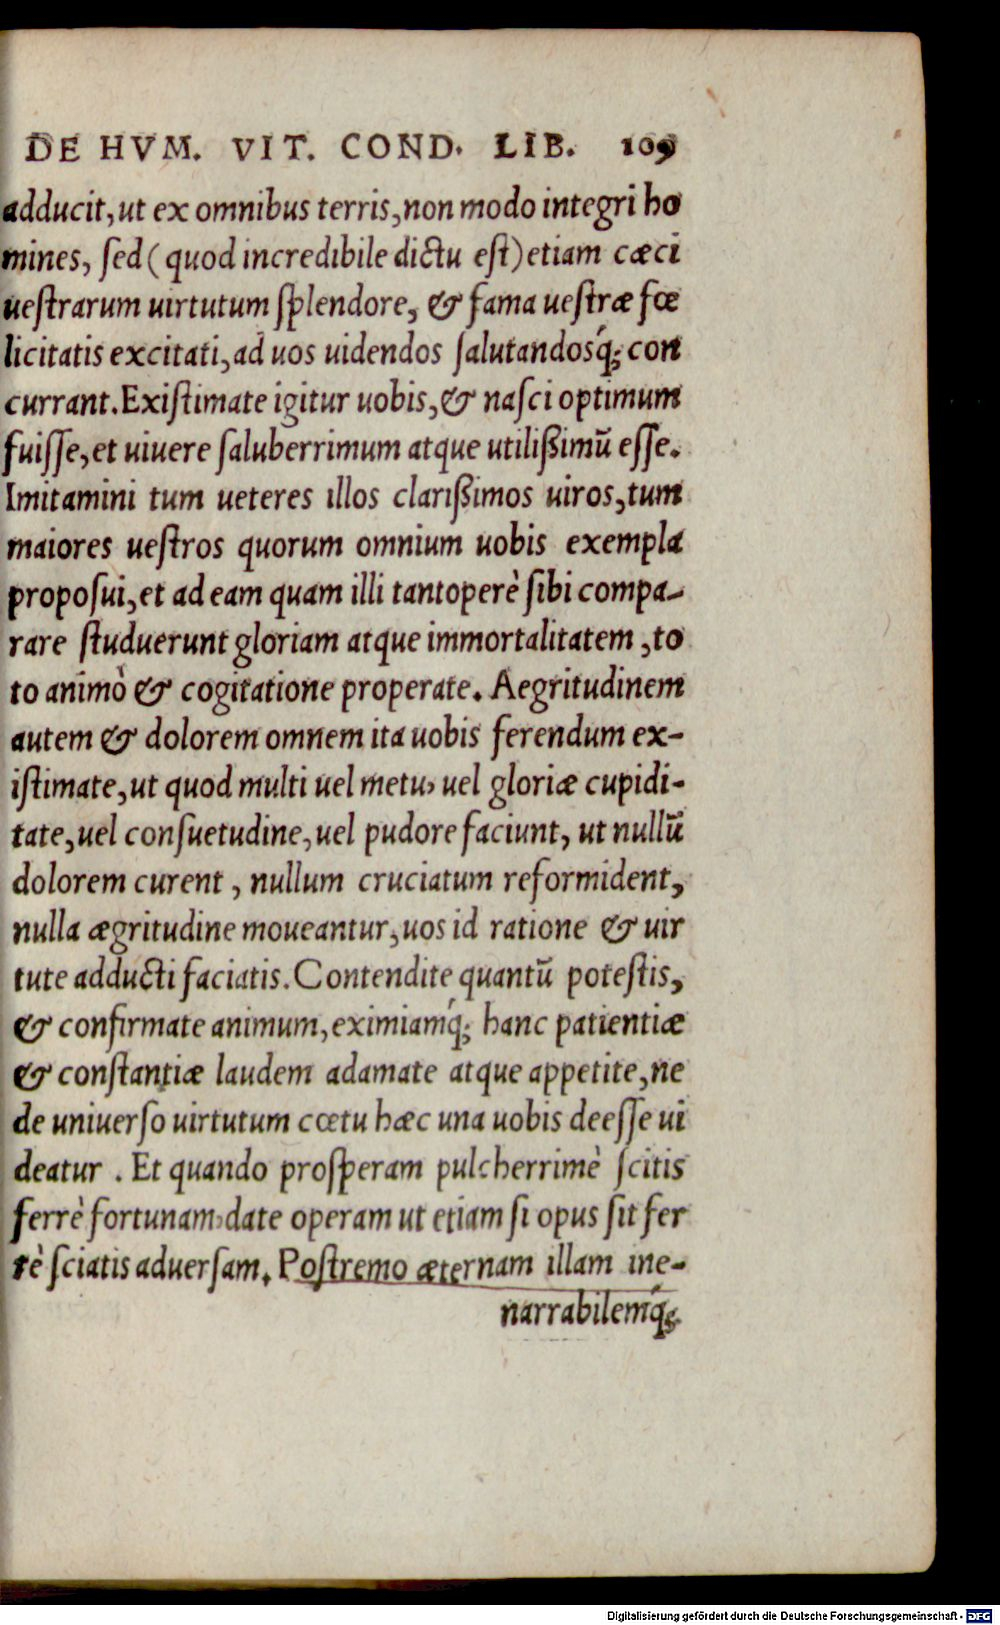 DE HVM. VIT. COND. LIB. 109
adducit, ut ex omnibus terris, non modo integri ho
mines, sed (quod incredibile dictu est) etiam cæci
uestrarum uirtutum splendore, & fama uestræ fœ
licitatis excitati, ad uos uidendos salutandosq́; con
currant. Existimate igitur uobis, & nasci optimum
fuisse, et uiuere saluberrimum atque utilißimũ esse.
Imitamini tum ueteres illos clarißimos uiros, tum
maiores uestros quorum omnium uobis exempla
proposui, et ad eam quam illi tantoperè sibi compa-
rare studuerunt gloriam atque immortalitatem, to
to animò & cogitatione properate. Aegritudinem
autem & dolorem omnem ita uobis ferendum ex-
istimate, ut quod multi uel metu, uel gloriæ cupidi-
tate, uel consuetudine, uel pudore faciunt, ut nullũ
dolorem curent, nullum cruciatum reformident,
nulla ægritudine moueantur, uos id ratione & uir
tute adducti faciatis. Contendite quantũ potestis,
& confirmate animum, eximiamq́; hanc patientiæ
& constantiæ laudem adamate atque appetite, ne
de uniuerso uirtutum cœtu hæc una uobis deesse ui
deatur. Et quando prosperam pulcherrimè scitis
ferrè fortunam, date operam ut etiam si opus sit fer
rè sciatis aduersam. Postremo æternam illam ine-
narrabilemq́;
Digitalisierung gefördert durch die Deutsche Forschungsgemeinschaft - DFG